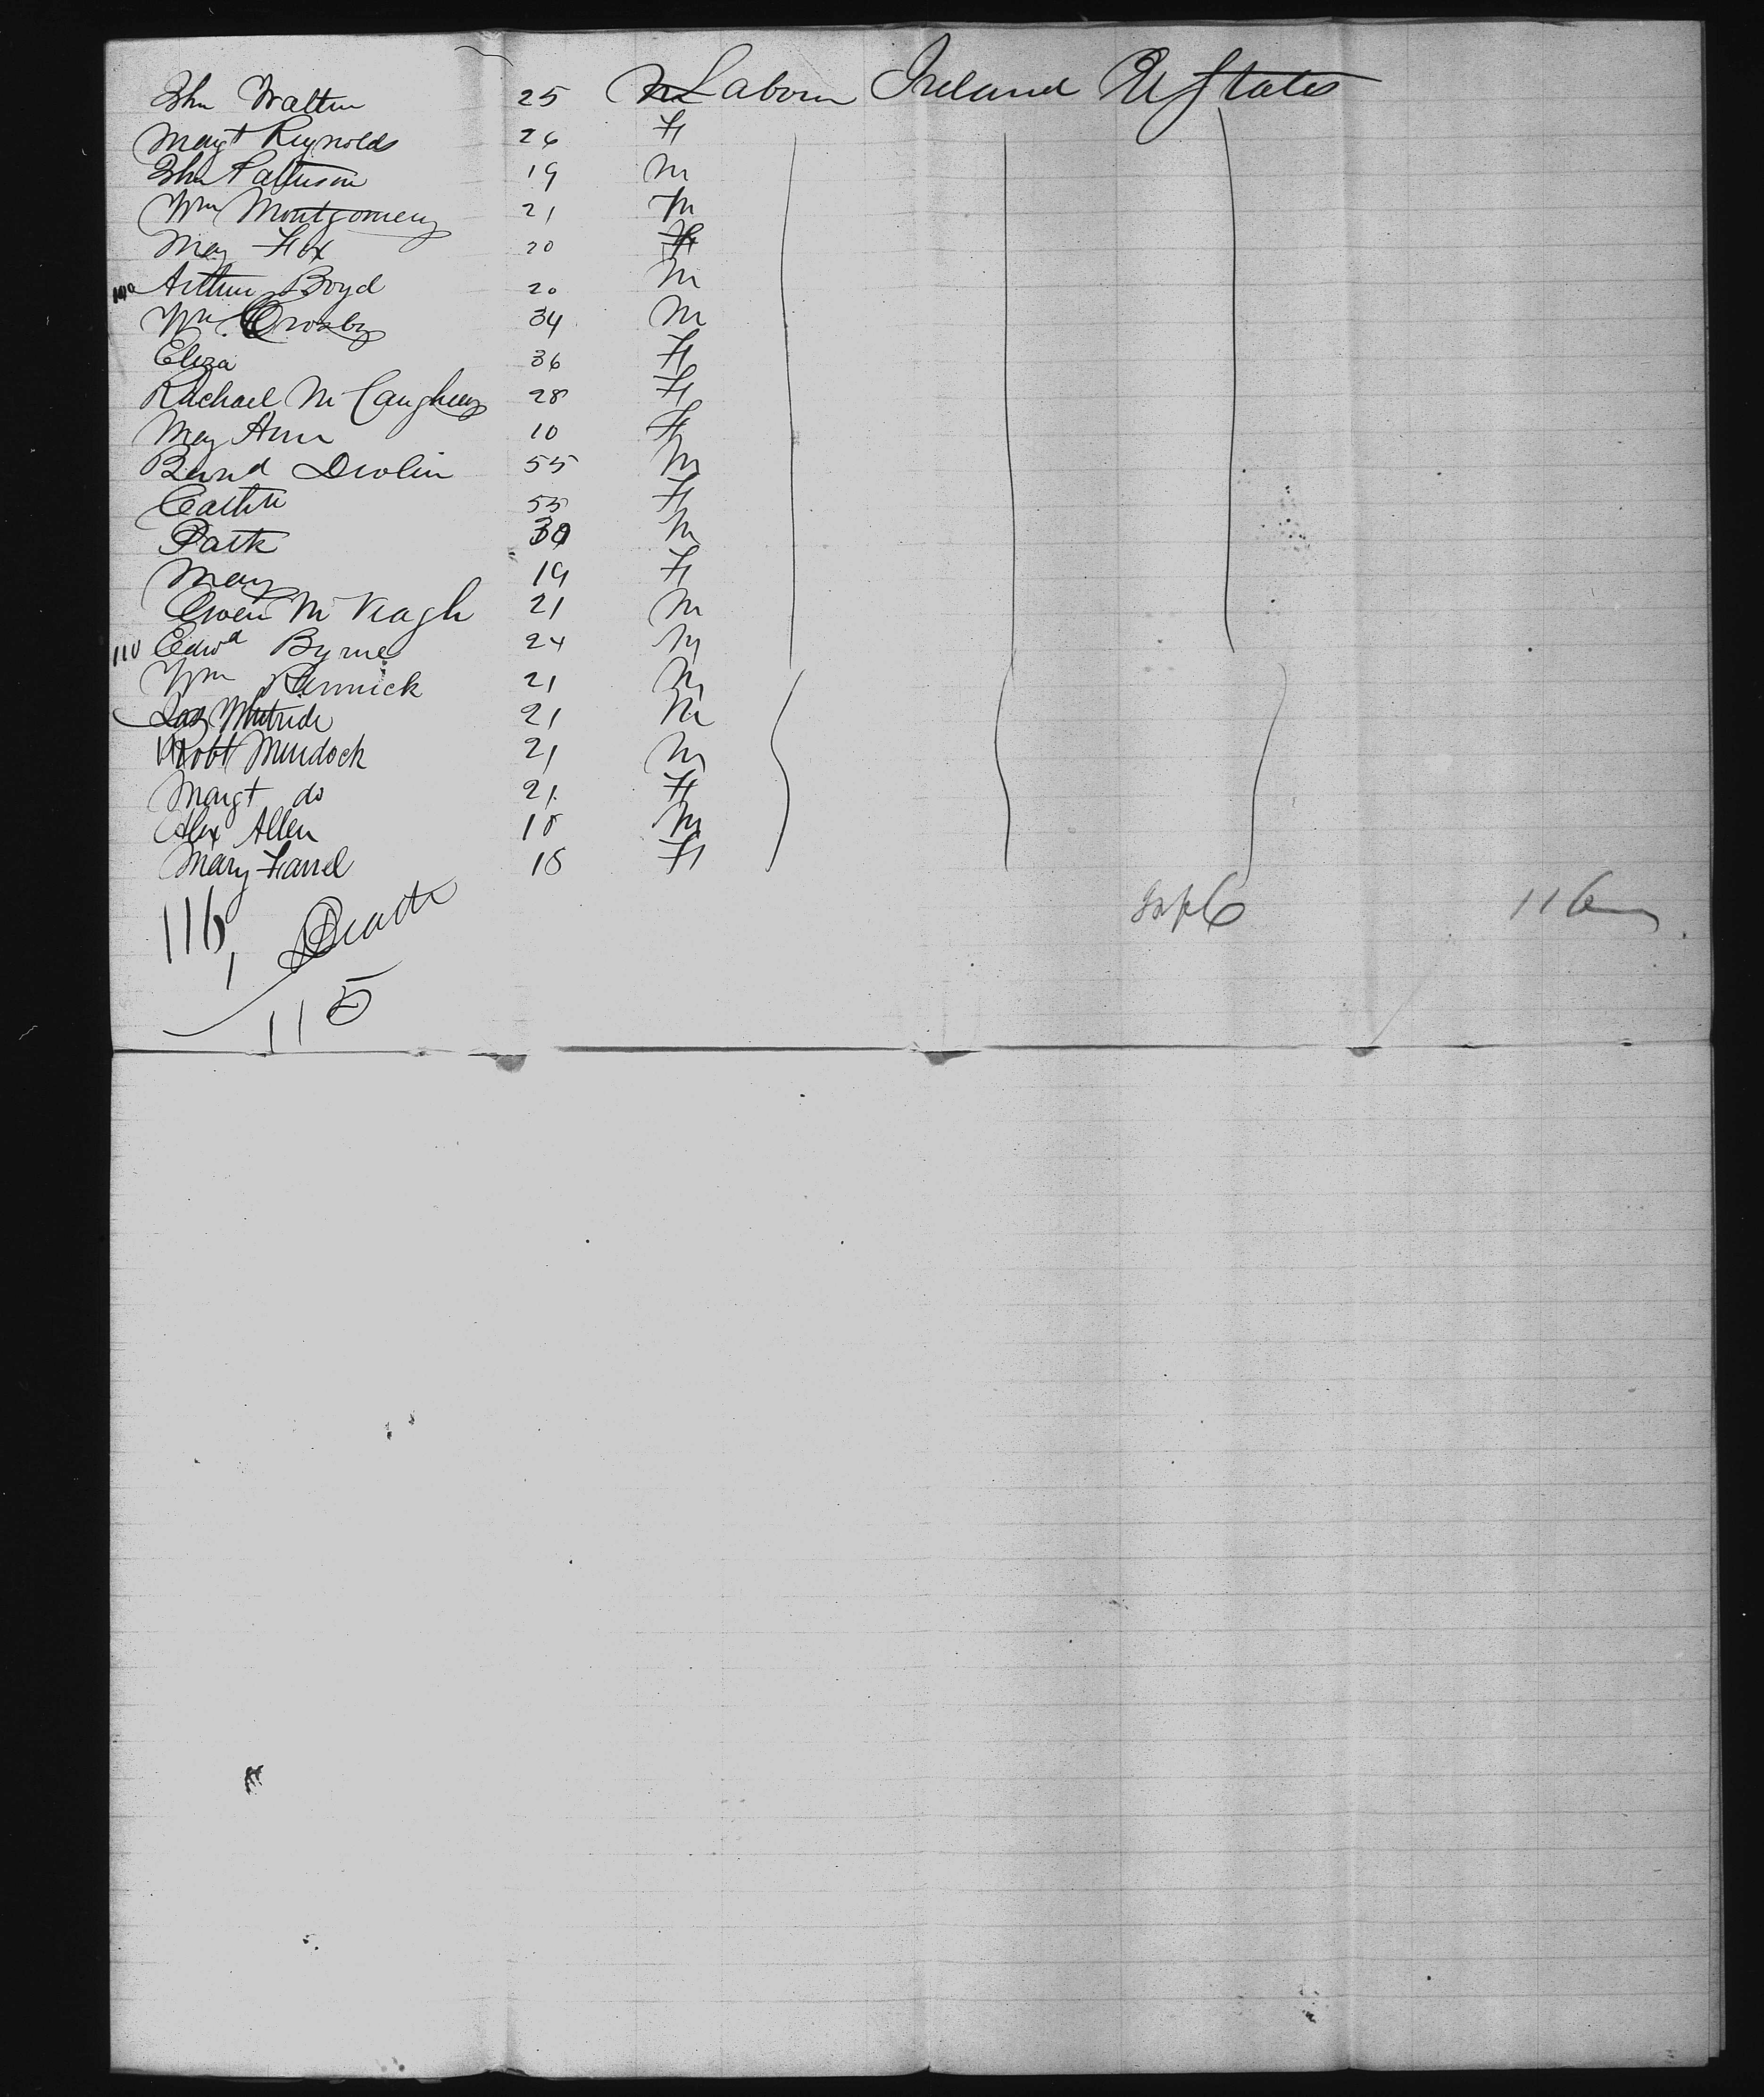 Jhn Walter 25 M Labour Ireland U States
Margt Reynolds 26 F
Jhn Patterson 19 M
Wm Montgomery 21 M
May Fox 20 F
100 Arthur Boyd 20 M
Wm Crosby 34 M
Eliza 36 F
Rachael McCaughey 28 F
May Ann 10 F
Bernd Devlin 55 M
Cathe 55 F
Patk 30 M
Mary 19 F
Owen McVeagh 21 M
110 Edwd Byrne 24 M
Wm 21 M
Jas 21 M
Robt Murdock 21 M
Margt do 21 F
Alex Allen 18 M
Mary Farrel 18 F
116 6 116
1 Death
115